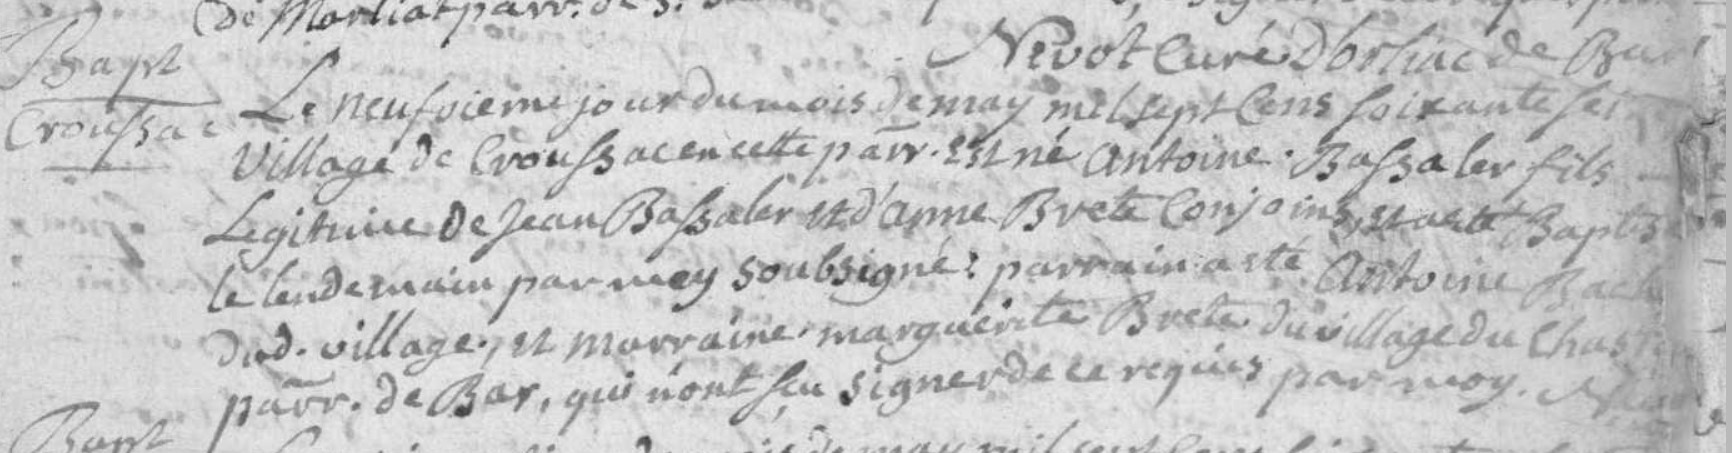 de Marliat parr. de S.
Nevot Curé Dorliac de Bar
Bapt
Croussac
Le neufvieme jour du mois de may mil sept Cens soixante
Village de Croussac en cette parr. Est né Antoine Bassaler fils
Legitime de Jean Bassaler et d'anne Brete Conjoins, et a eté Baptisé
le lendemain par moy soubsigné; parrain a eté Antoine
dud. village, et marraine marguerite Brete du village du
parr. de Bar, qui n'ont sçu signer de ce requis par moy.
Bapt
de may mil sept Cens